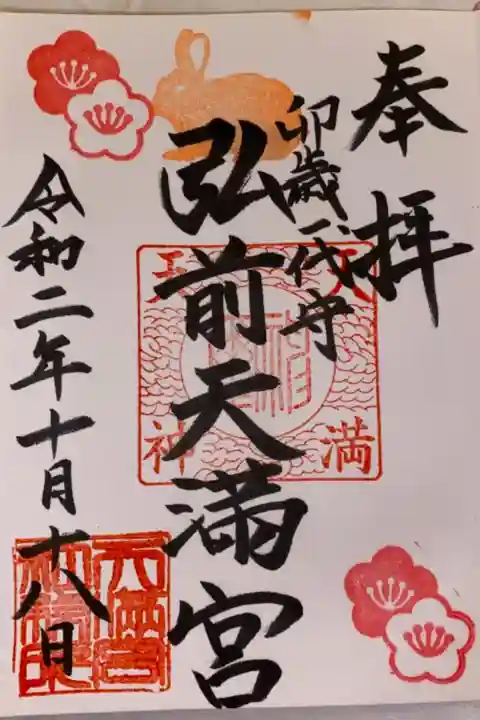 奉拝
卯歳一代守
弘前天満宮
天満
天神
令和二年十月十八日